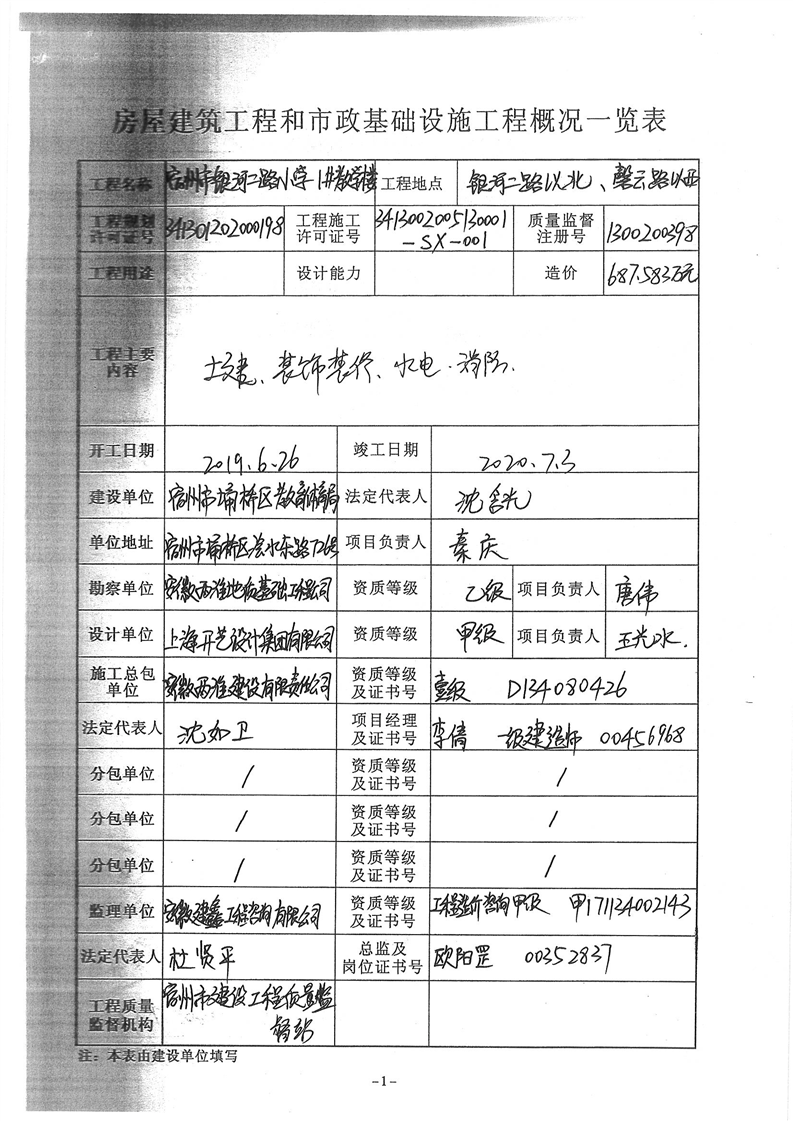 房屋建筑工程和市政基础设施工程概况一览表
工程名称 宿州市银河二路小学1#教学楼 工程地点 银河二路以北、磬云路以西
工程规划许可证号 341301202000198 工程施工许可证号 3413002005130001-SX-001 质量监督注册号 1300200398
工程用途 设计能力 造价 687.583万元
工程主要内容 土建、装饰装修、水电.消防.
开工日期 2019.6.26 竣工日期 2020.7.3
建设单位 宿州市埇桥区教育体育局 法定代表人 沈
单位地址 宿州市埇桥区 水东路 项目负责人 秦庆
勘察单位 安徽两淮地质基础工程公司 资质等级 乙级 项目负责人 唐伟
设计单位 上海开艺设计集团有限公司 资质等级 甲级 项目负责人 王光水.
施工总包单位 安徽两淮建设有限责任公司 资质等级及证书号 壹级 D134080426
法定代表人 沈如卫 项目经理及证书号 李倩 一级建造师 00456968
分包单位 / 资质等级及证书号 /
分包单位 / 资质等级及证书号 /
分包单位 / 资质等级及证书号 /
监理单位 安徽建鑫工程咨询有限公司 资质等级及证书号 工程造价咨询甲级 甲171134002143
法定代表人 杜贤平 总监及岗位证书号 欧阳罡 00352837
工程质量监督机构 宿州市建设工程质量监督站
注：本表由建设单位填写
-1-